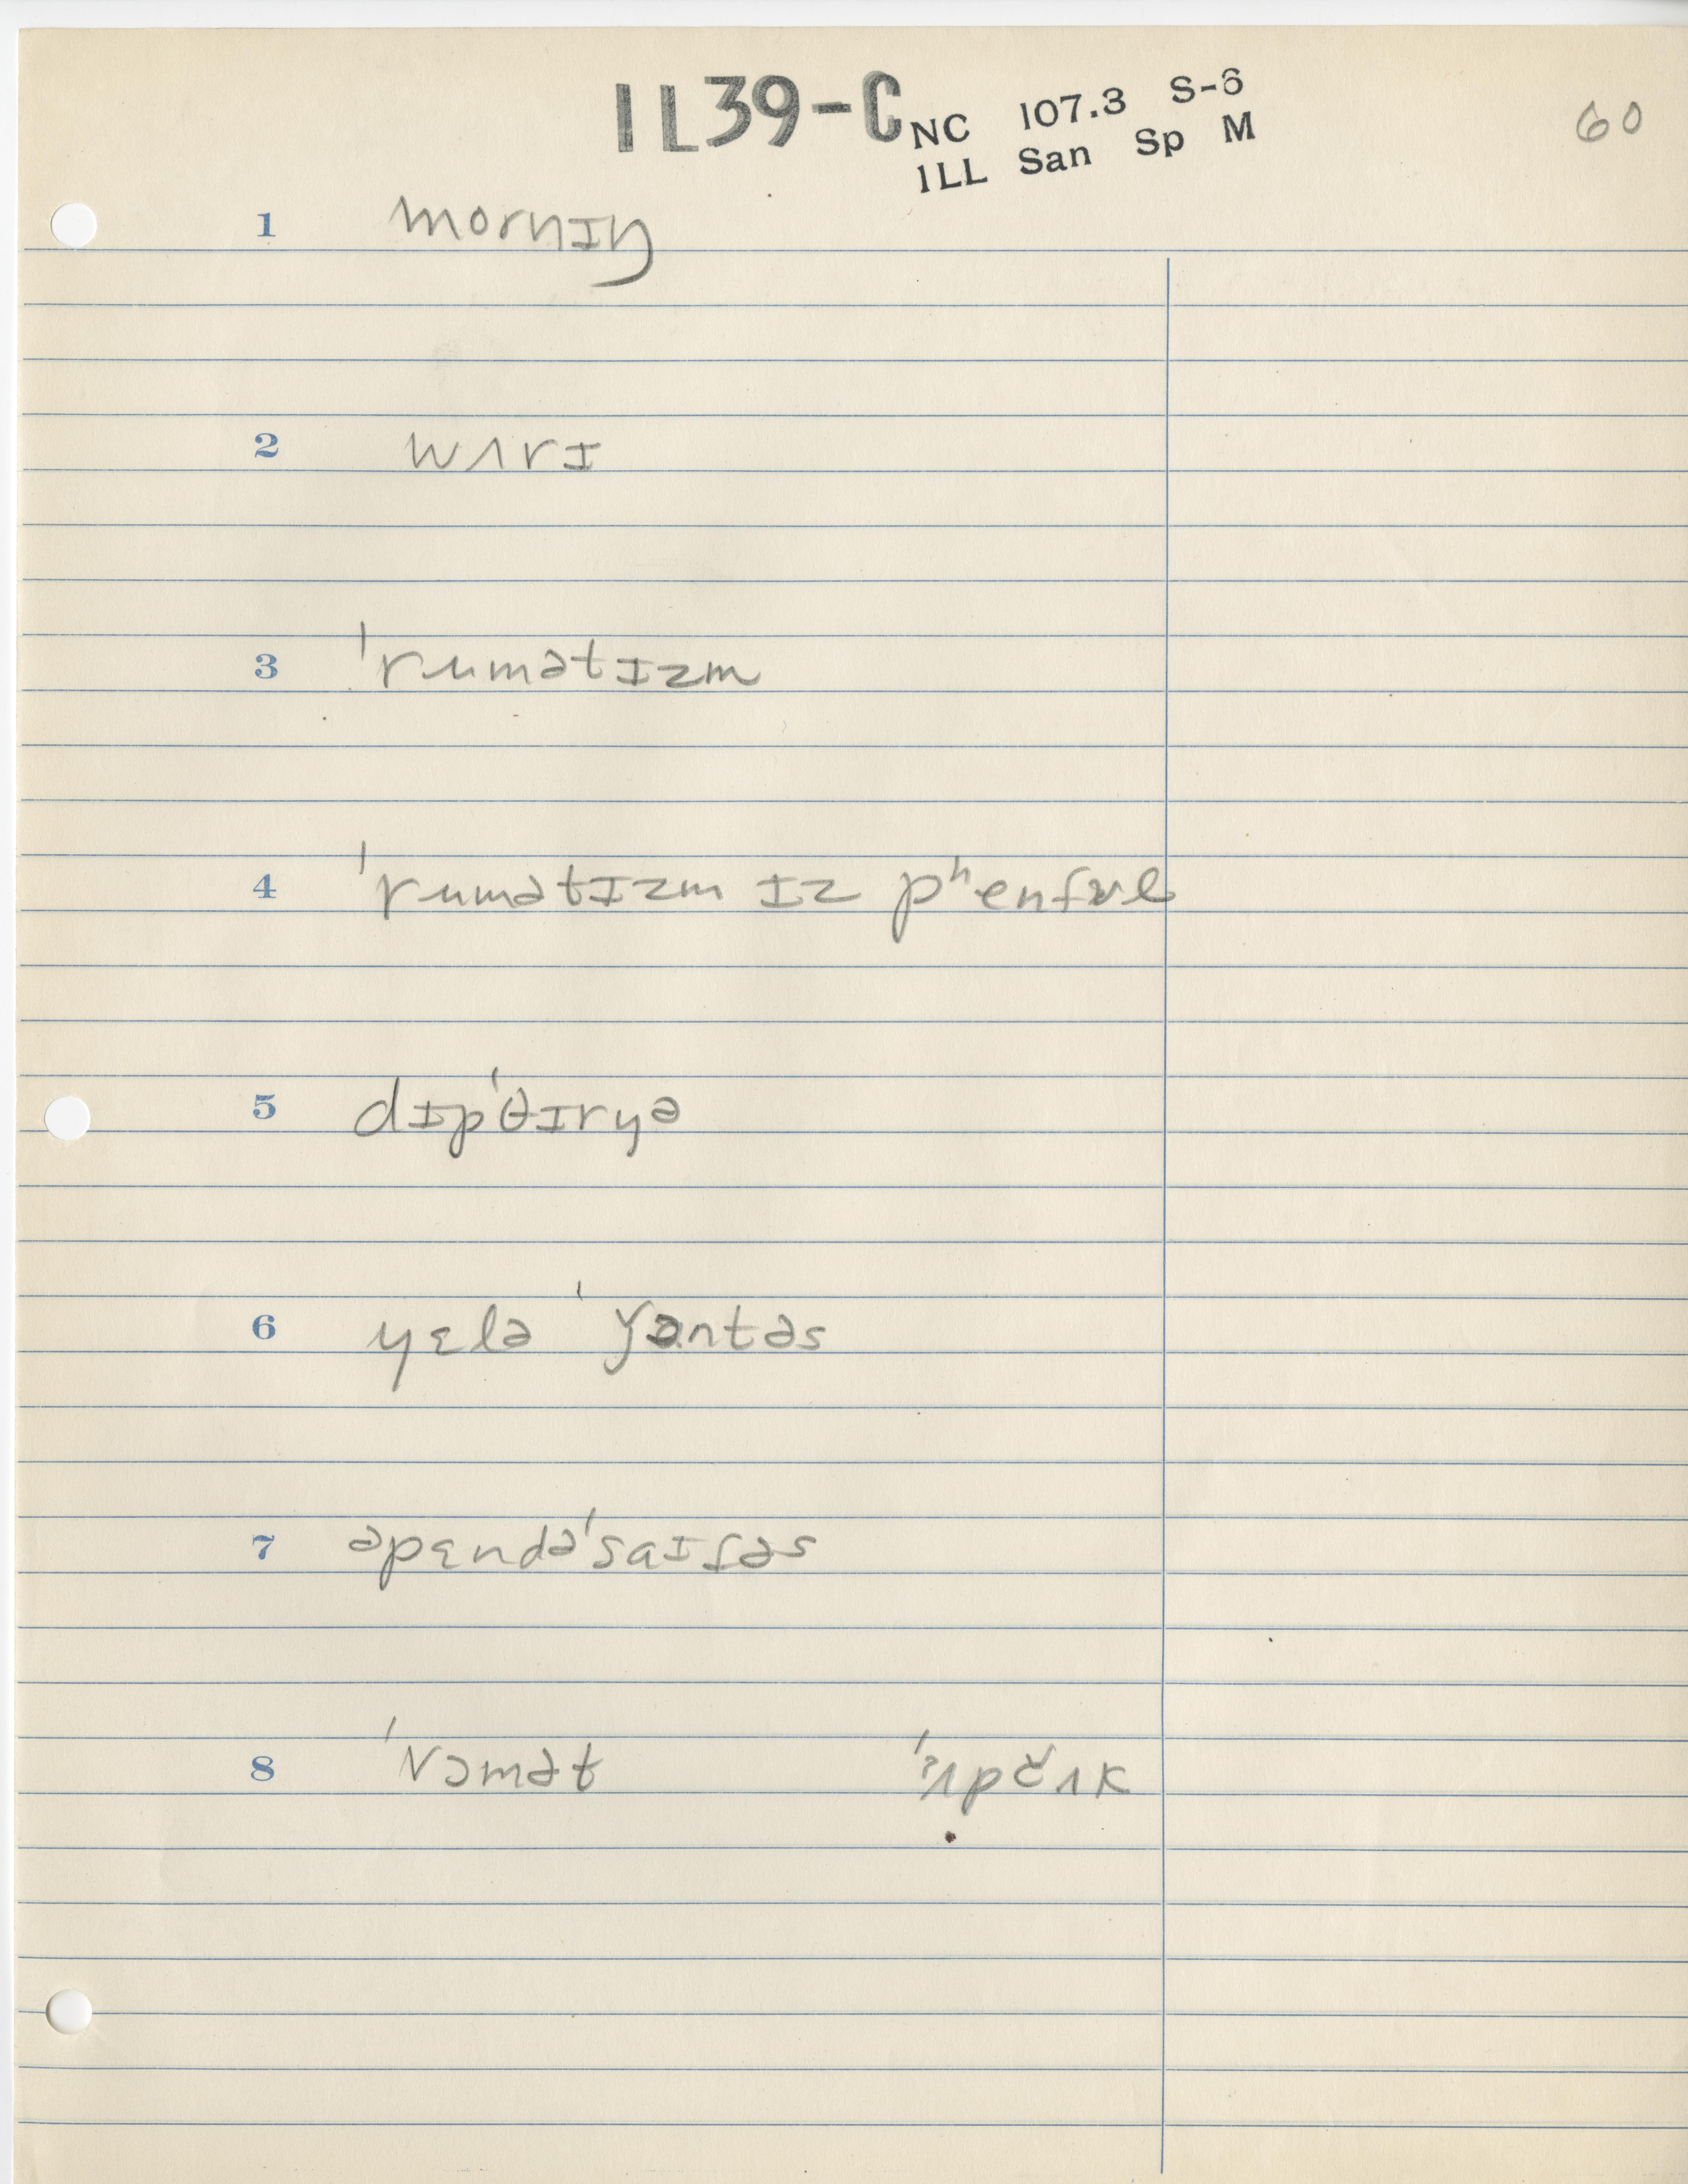 IL39-C NC 107.3 S-6
ILL San Sp M
60
1 mornɪŋ
2 wʌrɪ
3 ˈrumətɪzm
4 ˈrumətɪzm ɪz pʰenfʊl
5 dɪpˈθɪryə
6 yɛlə ˈǰɔntəs
7 əpɛndəˈsaɪtəs
8 ˈvɔmət ˈʔʌpčʌk